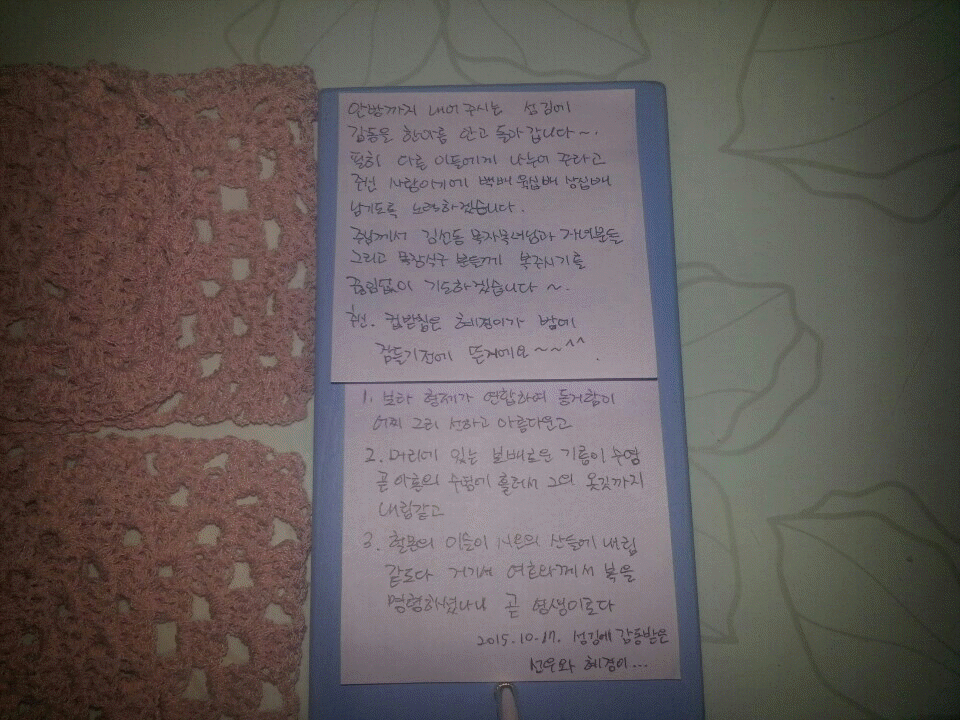 안방까지 내어 주시는 섬김에
감동을 한아름 안고 돌아 갑니다~.
필히 다른 이들에게 나누어 주라고
주신 사랑이기에 백배 육십배 삼십배
남기도록 노력하겠습니다.
주님께서 김선동 목자목녀님과 자녀분들
그리고 목장식구 분들께 복주시기를
끊임없이 기도하겠습니다~.
추신. 컵받침은 혜경이가 밤에
잠들기전에 뜬거에요~~^^.
1. 보라 형제가 연합하여 동거함이
어찌 그리 선하고 아름다운고
2. 머리에 있는 보배로운 기름이 수염
곧 아론의 수염에 흘러서 그의 옷깃까지
내림같고
3. 헐몬의 이슬이 시온의 산들에 내림
같도다 거기서 여호와께서 복을
명령하셨나니 곧 영생이로다
2015.10.17. 섬김에 감동받은
선우와 혜경이...